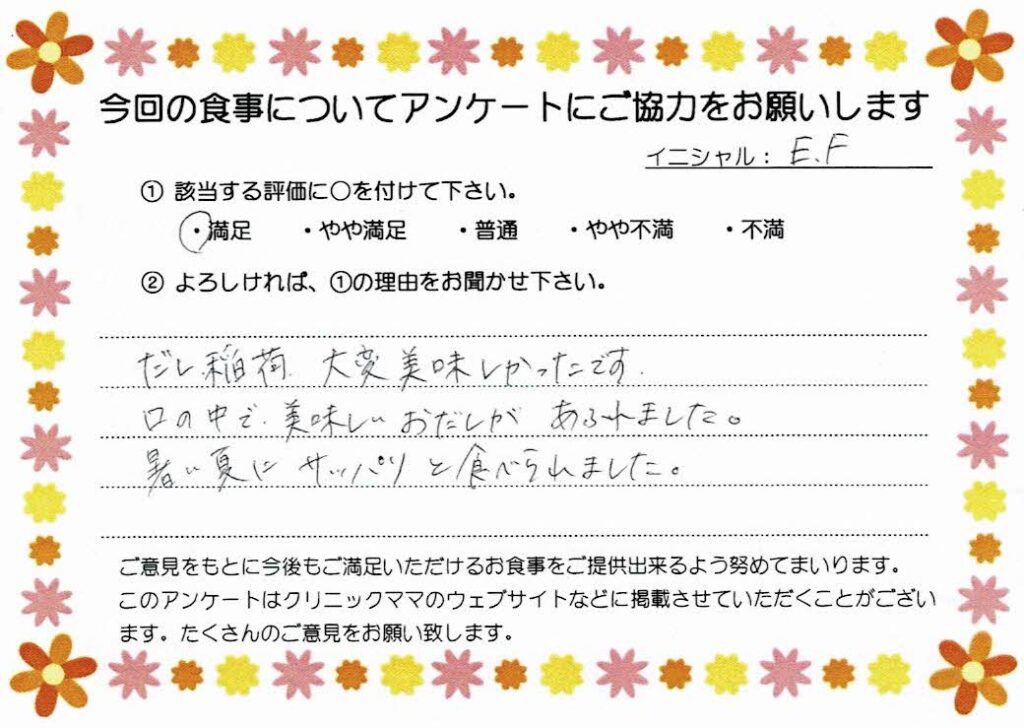 今回の食事についてアンケートにご協力をお願いします
イニシャル： E.F
① 該当する評価に〇を付けて下さい。
・満足 ・やや満足 ・普通 ・やや不満 ・不満
② よろしければ、①の理由をお聞かせ下さい。
だし稲荷 大変美味しかったです.
口の中で、美味しいおだしが あふれました。
暑い夏に サッパリと食べられました。
ご意見をもとに今後もご満足いただけるお食事をご提供出来るよう努めてまいります。
このアンケートはクリニックママのウェブサイトなどに掲載させていただくことがござい
ます。たくさんのご意見をお願い致します。